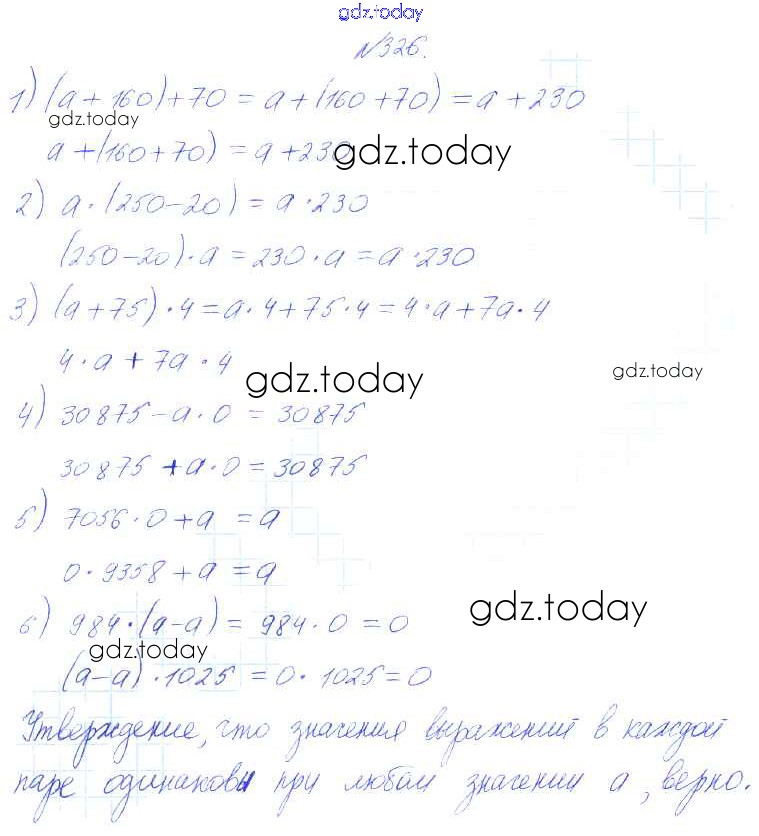 gdz.today
№326.
1) (a+160)+70 = a+(160+70) = a+230
gdz.today
a+(160+70) = a+230
gdz.today
2) a·(250-20) = a·230
(250-20)·a = 230·a = a·230
3) (a+75)·4 = a·4+75·4 = 4·a+7a·4
4·a+7a·4
gdz.today
gdz.today
4) 30875-a·0 = 30875
30875+a·0 = 30875
5) 7056·0+a = a
0·9358+a = a
gdz.today
6) 984·(a-a) = 984·0 = 0
gdz.today
(a-a)·1025 = 0·1025 = 0
Утверждение, что значения выражений в каждой
паре одинаковы при любом значении a, верно.